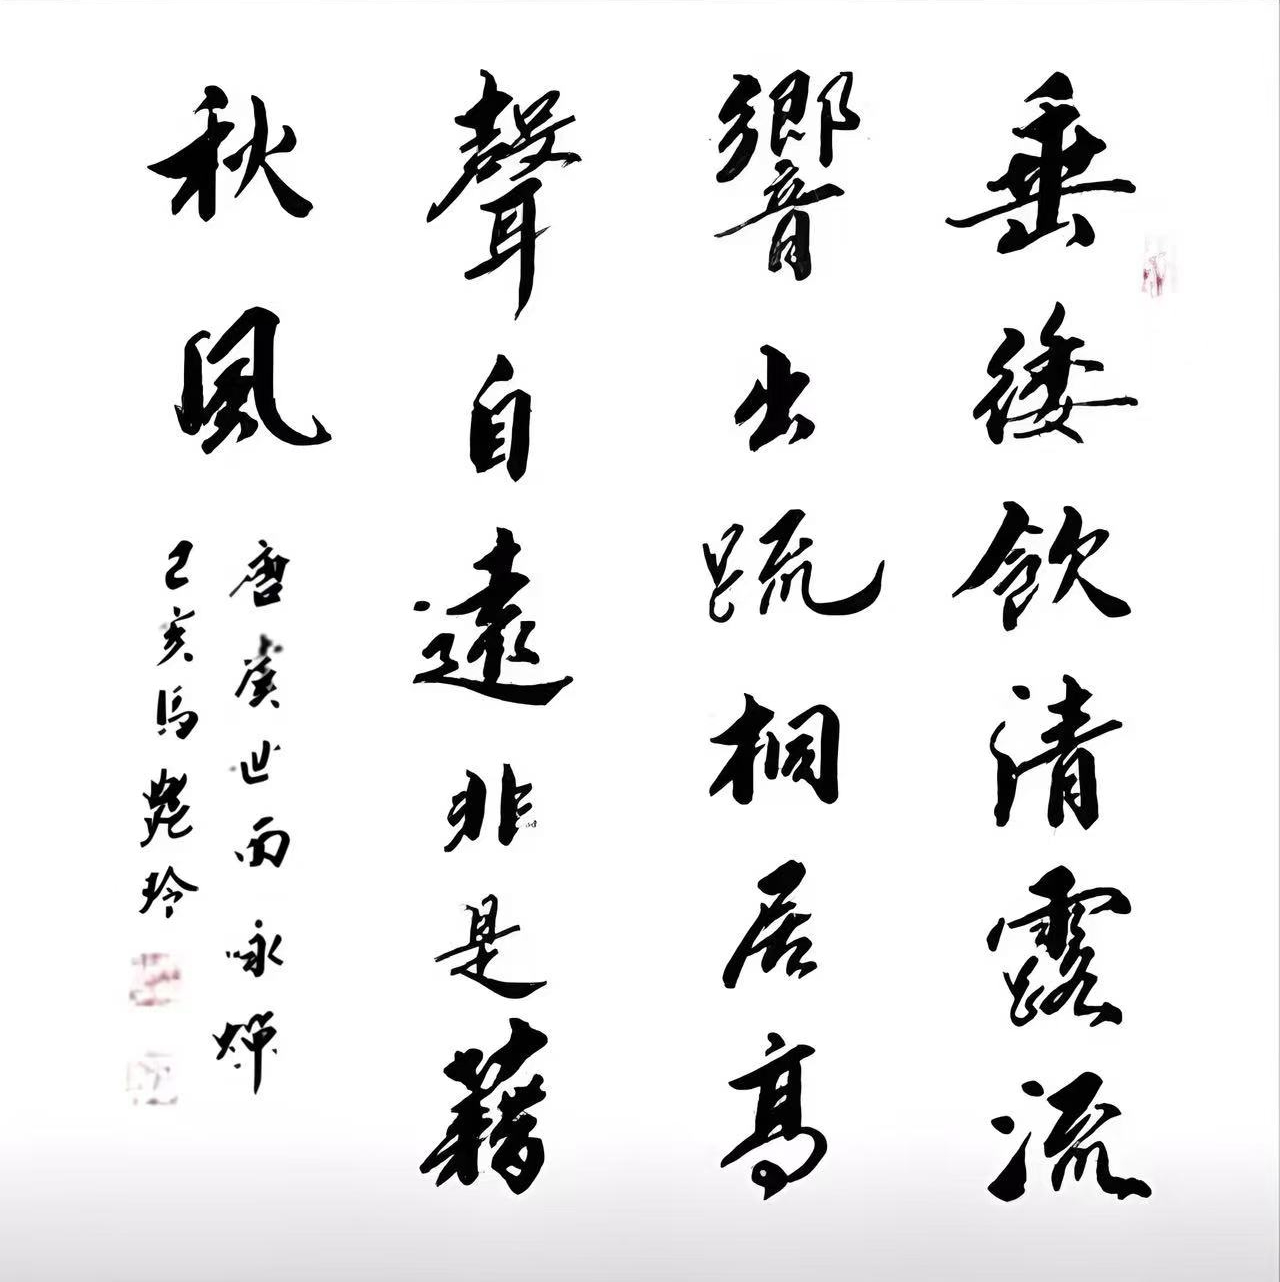 垂緌飲清露流
響出䟽桐居高
聲自遠非是藉
秋風
唐虞世南咏蟬
己亥馬玲